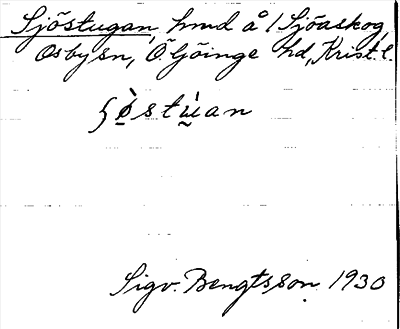 Sjöstugan, hmd å 1 Sjöaskog,
Osby sn, Ö. Göinge hd, Krist. l.
ʃø̀stu̇̀an
Sigv. Bengtsson 1930